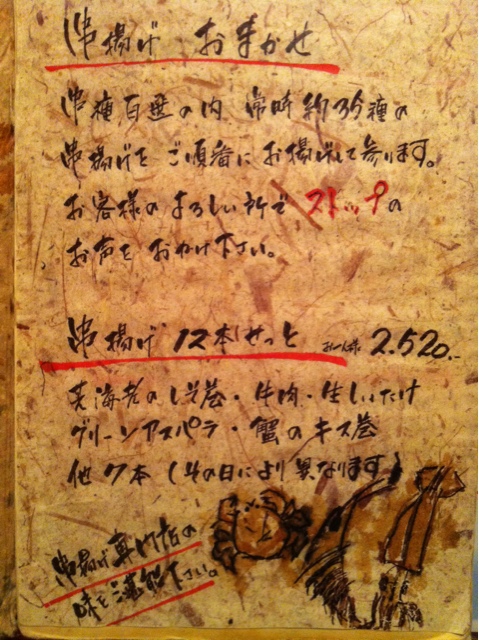 串揚げ おまかせ
串種百壺の内 常時約35種の
串揚げを ご順番にお揚げして参ります。
お客様のよろしい所で ストップの
お声を おかけ下さい。
串揚げ 12本せっと お一人様 2.520.-
芝海老のしそ巻・牛肉・生しいたけ
グリーンアスパラ・蟹のキス巻
他7本 (その日により異なります)
串揚げ専門店の
味をご堪能下さい。